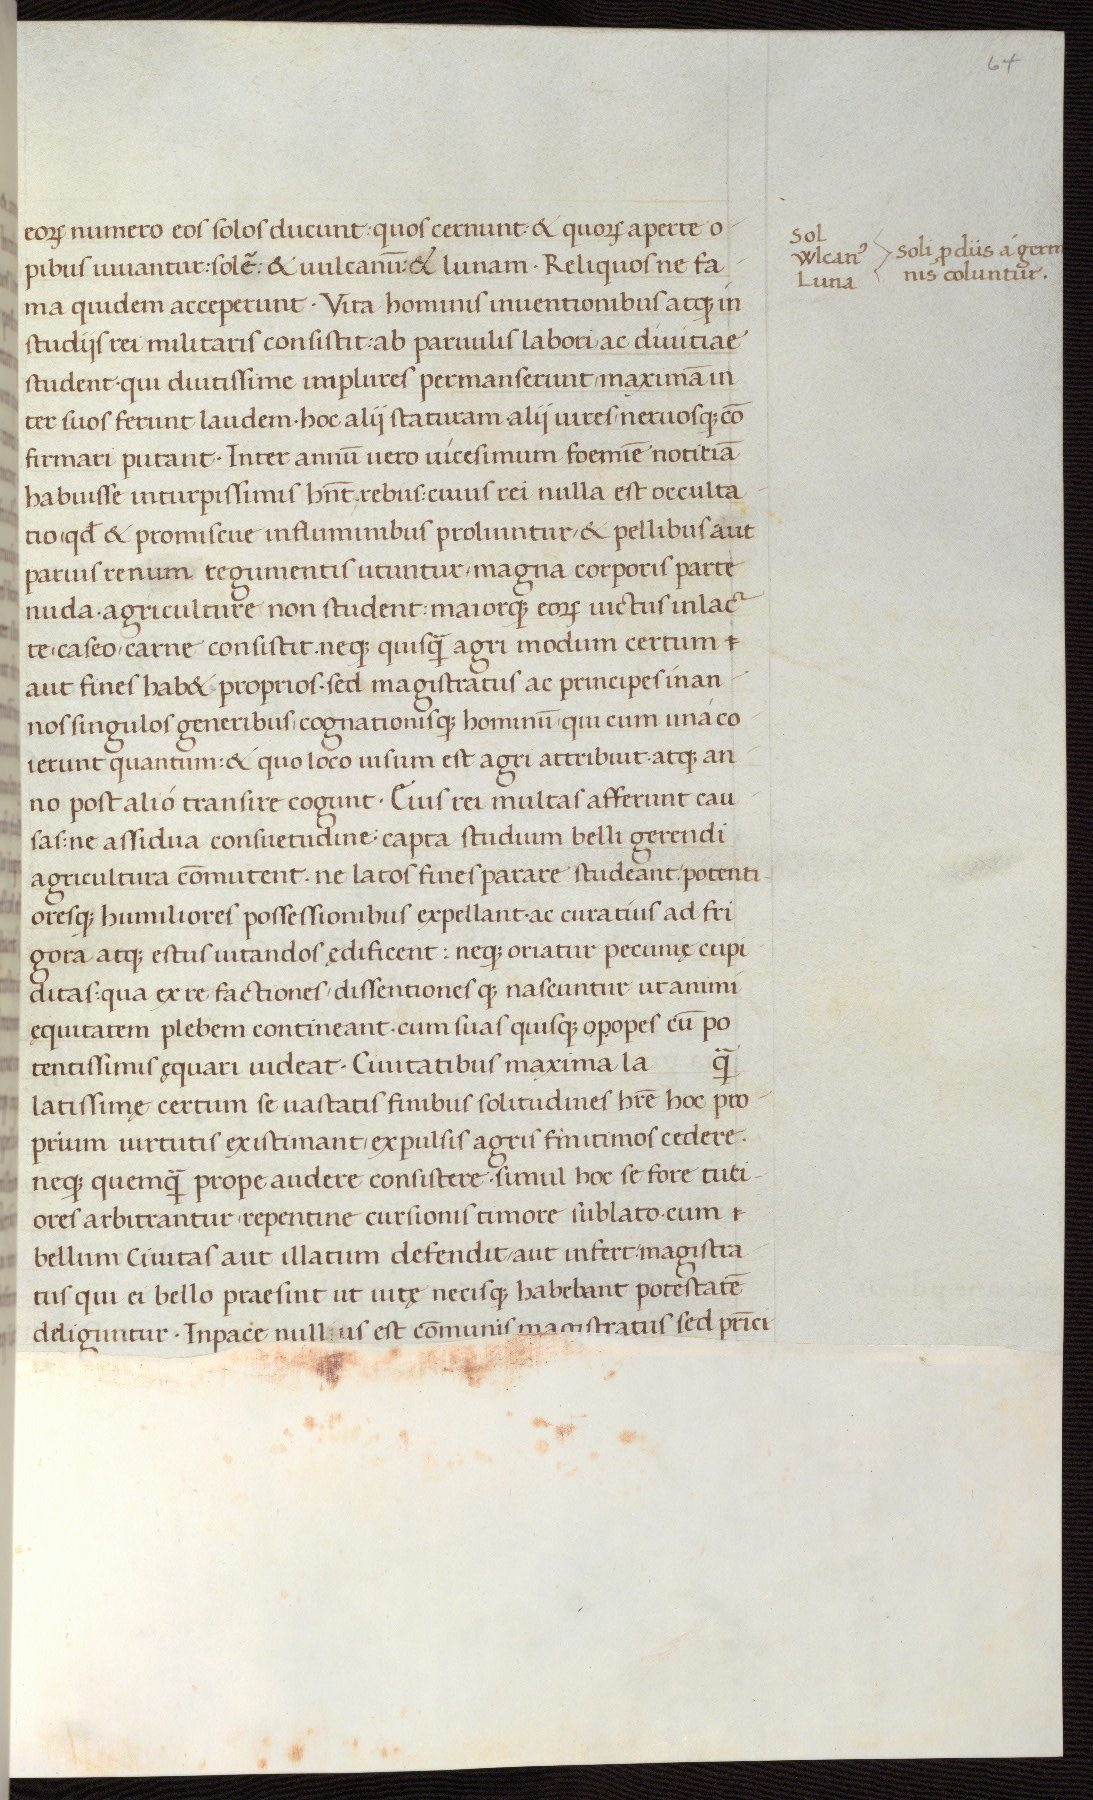 64
eoꝝ numero eos solos ducunt: quos cernunt: & quoꝝ aperte o
pibus iuvantur: solē: & vulcanū: & lunam. Reliquos ne fa
ma quidem acceperunt. Vita hominis inventionibus atq; in
studijs rei militaris consistit: ab parvulis labori ac divitiae
student. qui divitissime implures permanserunt, maximā in
ter suos ferunt laudem. hoc alij staturam. alij vires, nervosq; cō
firmari putant. Inter annū vero vicesimum foemīe notitiā
habuisse inturpissimis hn̄t rebus: cuius rei nulla est occulta
tio, qđ & promiscue influminibus proluuntur, & pellibus aut
parvis renum tegumentis utuntur, magna corporis parte
nuda. agriculture non student: maiorq; eoꝝ victus inlac
te, caseo, carne consistit. neq; quisq̄ agri modum certum
aut fines hab& proprios. sed magistratus ac principes inan
nos singulos generibus, cognationisq; hominū, qui cum una co
ierunt quantum: & quo loco visum est agri attribuit. atq; an
no post alió transire cogunt. Cuis rei multas afferunt cau
sas: ne assidua consuetudine: capta studium belli gerendi
agricultura cōmutent. ne latos fines parare studeant, potenti
oresq; humiliores possessionibus expellant. ac curatius ad fri
gora atq; estus vitandos ędificent: neq; oriatur pecunię cupi
ditas: qua ex re factiones, dissentionesq; nascuntur ut animi
ęquitatem plebem contineant. cum suas quisq; opopes cū po
tentissimis ęquari videat. Civitatibus maxima la q̄
latissimę certum se vastatis finibus solitudines hr̄e hoc pro
prium virtutis existimant, expulsis agris finitimos cedere.
neq; quemq̄ prope audere consistere. simul hoc se fore tuti
ores arbitrantur, repentine cursionis timore sublato. cum
bellum Civitas aut illatum defendit, aut infert, magistra
tus qui ei bello praesint ut vitę necisq; habebant potestatē
deliguntur. Inpace nullius est cōmunis magistratus sed prīci
Sol
Wlcanꝰ
Luna
Soli ꝓ diis á germ
nis coluntur.